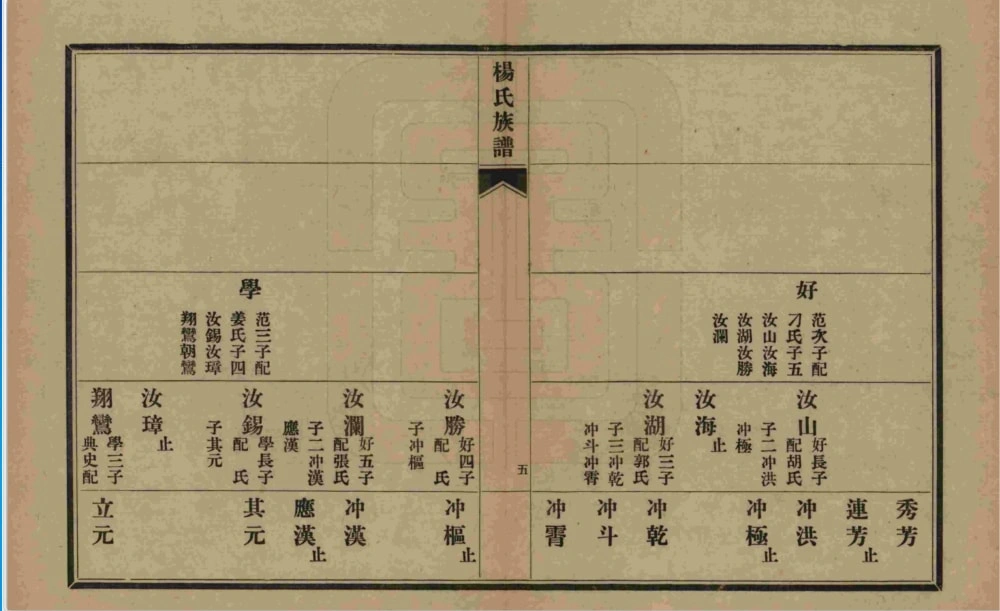 楊氏族譜
五
好
范次子配
刁氏子五
汝山汝海
汝湖汝勝
汝瀾
學
范三子配
姜氏子四
汝錫汝璋
翔鸞朝鸞
汝山
好長子
配胡氏
子二冲洪
冲極
汝海止
汝湖
好三子
配郭氏
子三冲乾
冲斗冲霄
汝勝
好四子
配 氏
子冲樞
汝瀾
好五子
配張氏
子二冲漢
應漢
汝錫
學長子
配 氏
子其元
汝璋止
翔鸞
學三子
典史配
秀芳
連芳止
冲洪
冲極止
冲乾
冲斗
冲霄
冲樞止
冲漢
應漢止
其元
立元